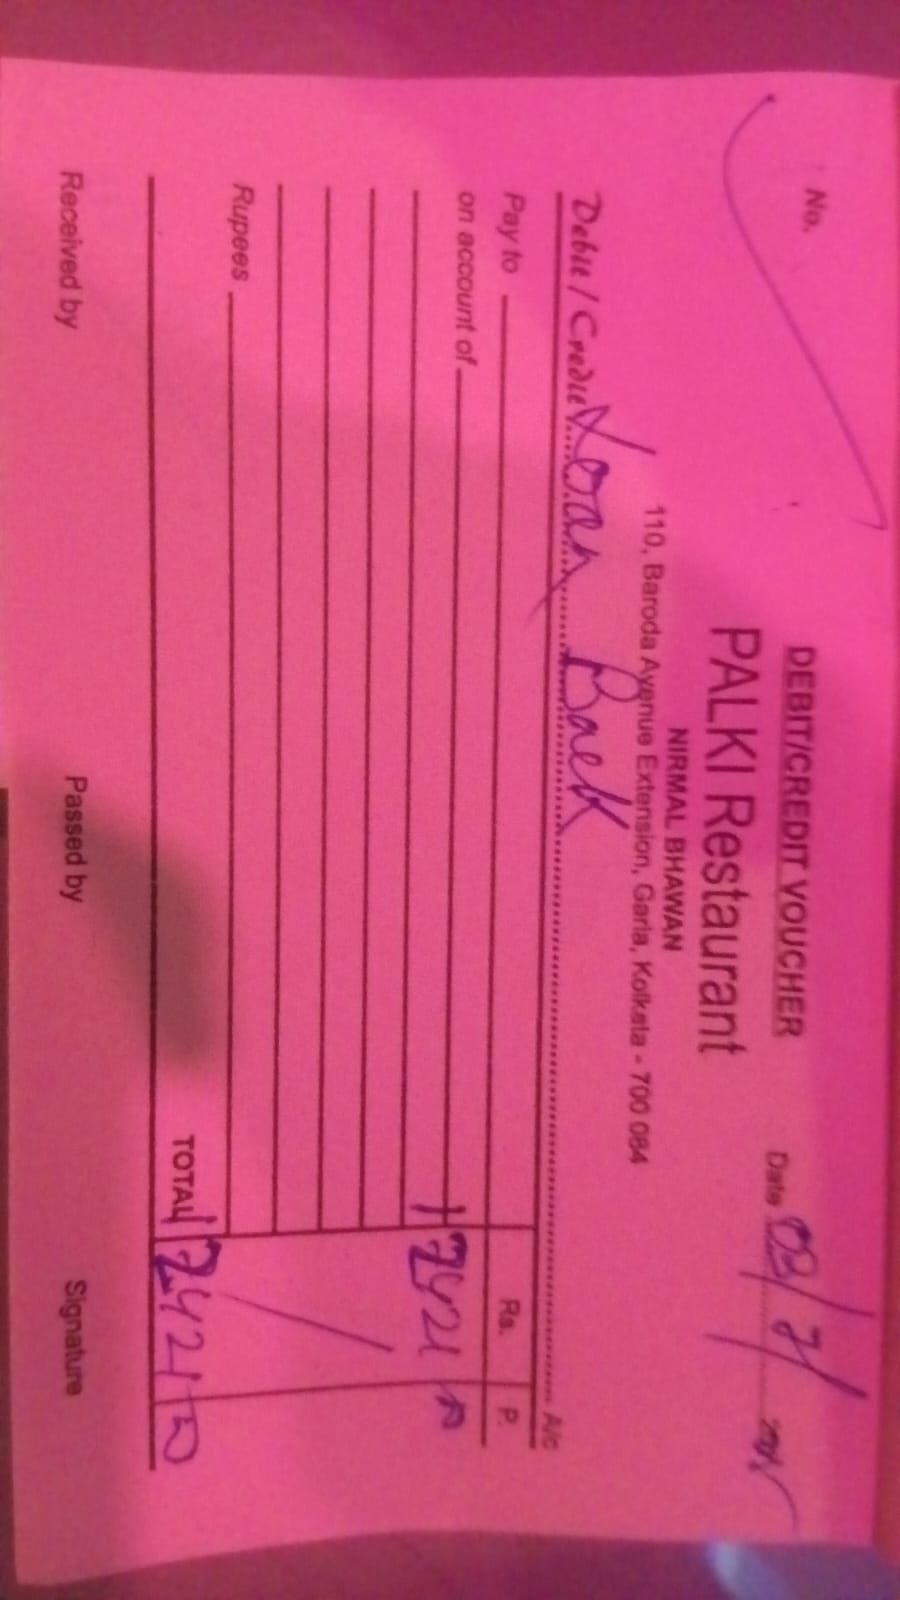 No.
DEBIT/CREDIT VOUCHER
PALKI Restaurant
Date
NIRMAL BHAWAN
110, Baroda Avenue Extension, Garia, Kolkata - 700 084
Debit / Credit Loan Back A/c
Pay to Rs. P.
on account of
Rupees
TOTAL
Received by Passed by Signature